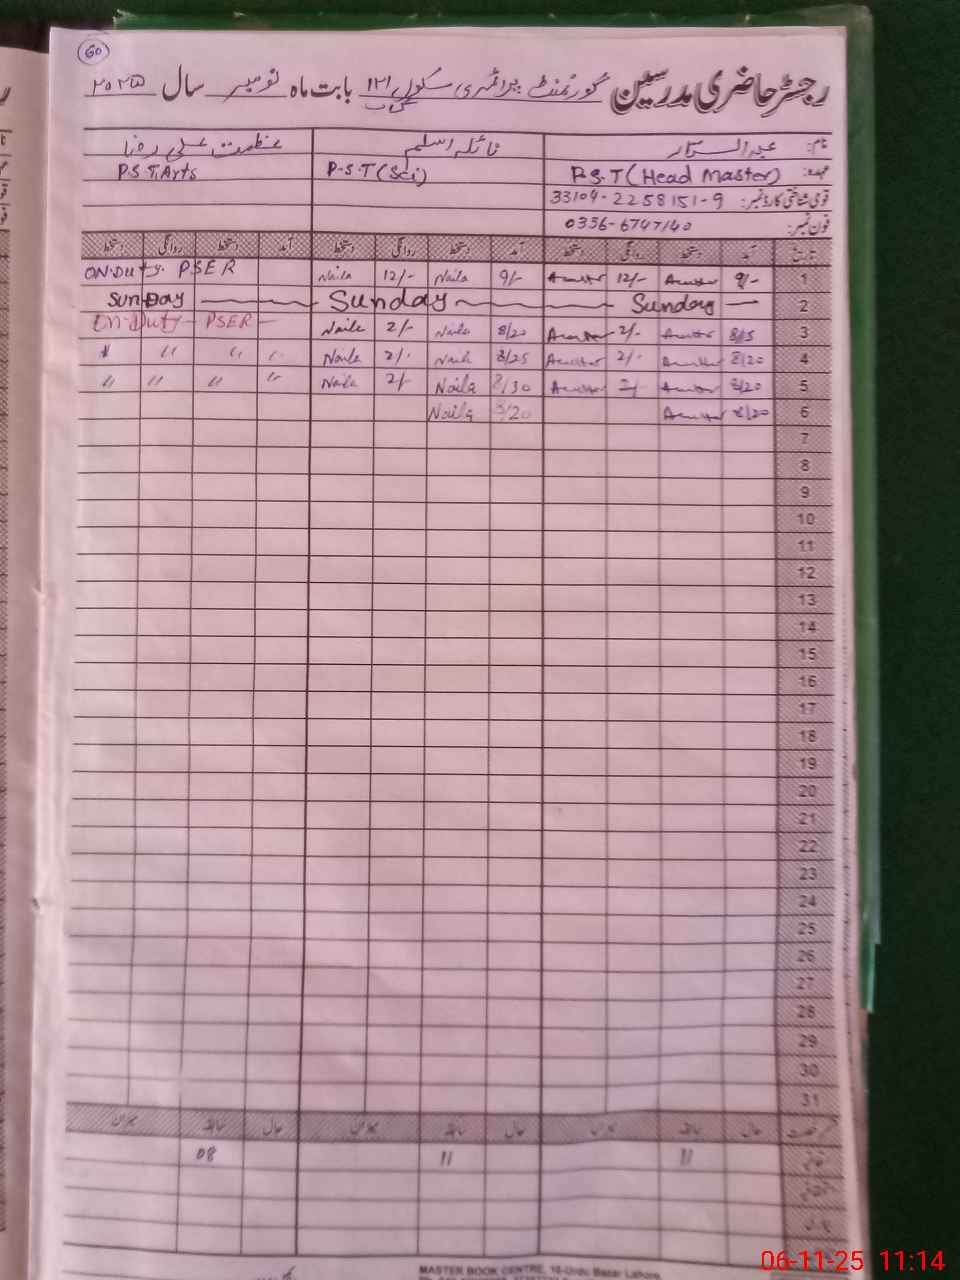 60
رجسٹر حاضری مدرسین گورنمنٹ پرائمری سکول ۱۲۱ گ ب بابت ماہ نومبر سال ۲۰۲۵
نام: عبدالستار نائلہ اسلم عظمت علی رضا
عہدہ: P.S.T (Head Master) P.S.T (Sci) P.S.T, Arts
قومی شناختی کارڈ نمبر: 33104-2258151-9
فون نمبر: 0336-6747140
تاریخ آمد دستخط روانگی دستخط آمد دستخط روانگی دستخط آمد دستخط روانگی دستخط
ON.Duty. PSER Naila 12/- Naila 9/- 12/- 9/- 1
Sunday Sunday Sunday 2
On-Duty - PSER - Naila 2/- Naila 8/20 2/- 8/15 3
" " " " Naila 2/- Naila 8/25 2/- 8/20 4
" " " " Naila 2/- Naila 8/30 2/- 8/20 5
Naila 8/20 8/20 6
7
8
9
10
11
12
13
14
15
16
17
18
19
20
21
22
23
24
25
26
27
28
29
30
31
حال سابقہ میزان حال سابقہ میزان حال سابقہ میزان
اتفاقی 11 11 08
MASTER BOOK CENTRE, 16-Urdu Bazar Lahore.
06-11-25 11:14